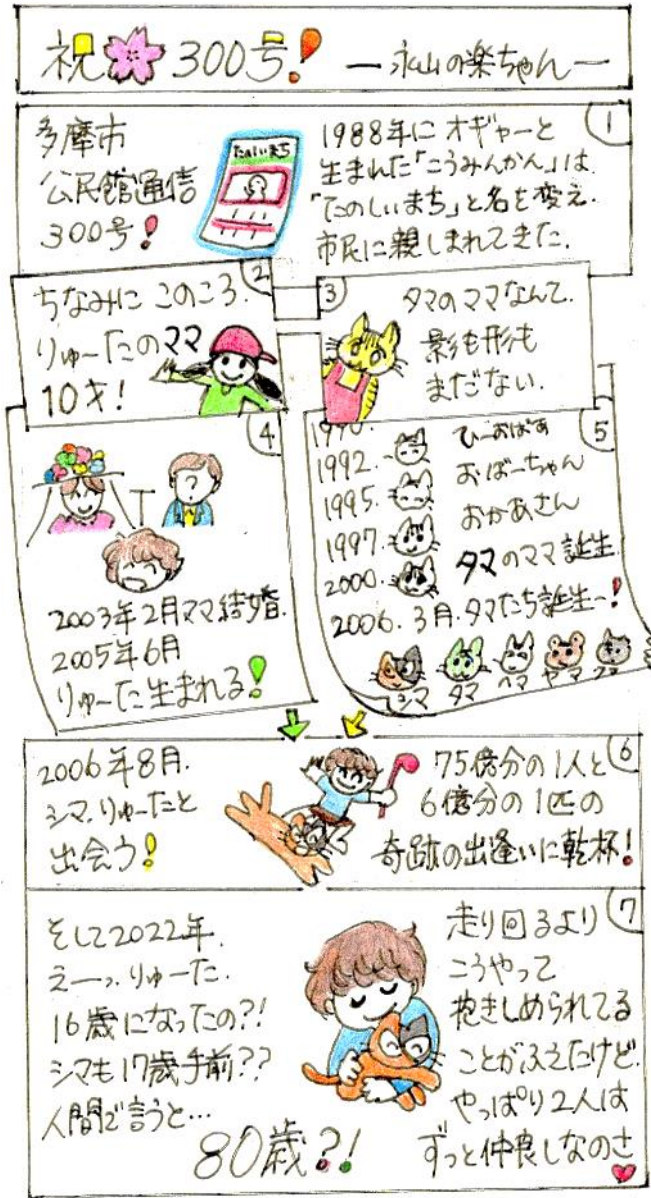 祝🌸300号! ー永山の楽ちゃんー
①
多摩市
公民館通信
300号!
たのしいまち
1988年に オギャーと
生まれた「こうみんかん」は
「たのしいまち」と名を変え.
市民に親しまれてきた.
②
ちなみに このころ.
りゅーたのママ
10才!
③
タマのママなんて.
影も形も
まだない.
④
?
2003年2月ママ結婚.
2005年6月
りゅーた生まれる!
⑤
1990. ひーおばあ
1992. おばーちゃん
1995. おかあさん
1997. タマのママ誕生
2000.
2006. 3月.タマたち誕生〜!
シマ タマ ヘマ ヤマ クマ
⑥
2006年8月.
シマ.りゅーたと
出会う!
75億分の1人と
6億分の1匹の
奇跡の出逢いに乾杯!
⑦
そして2022年.
えーっ.りゅーた.
16歳になったの?!
シマも17歳手前??
人間で言うと…
80歳?!
走り回るより
こうやって
抱きしめられてる
ことがふえたけど.
やっぱり2人は
ずっと仲良しなのさ